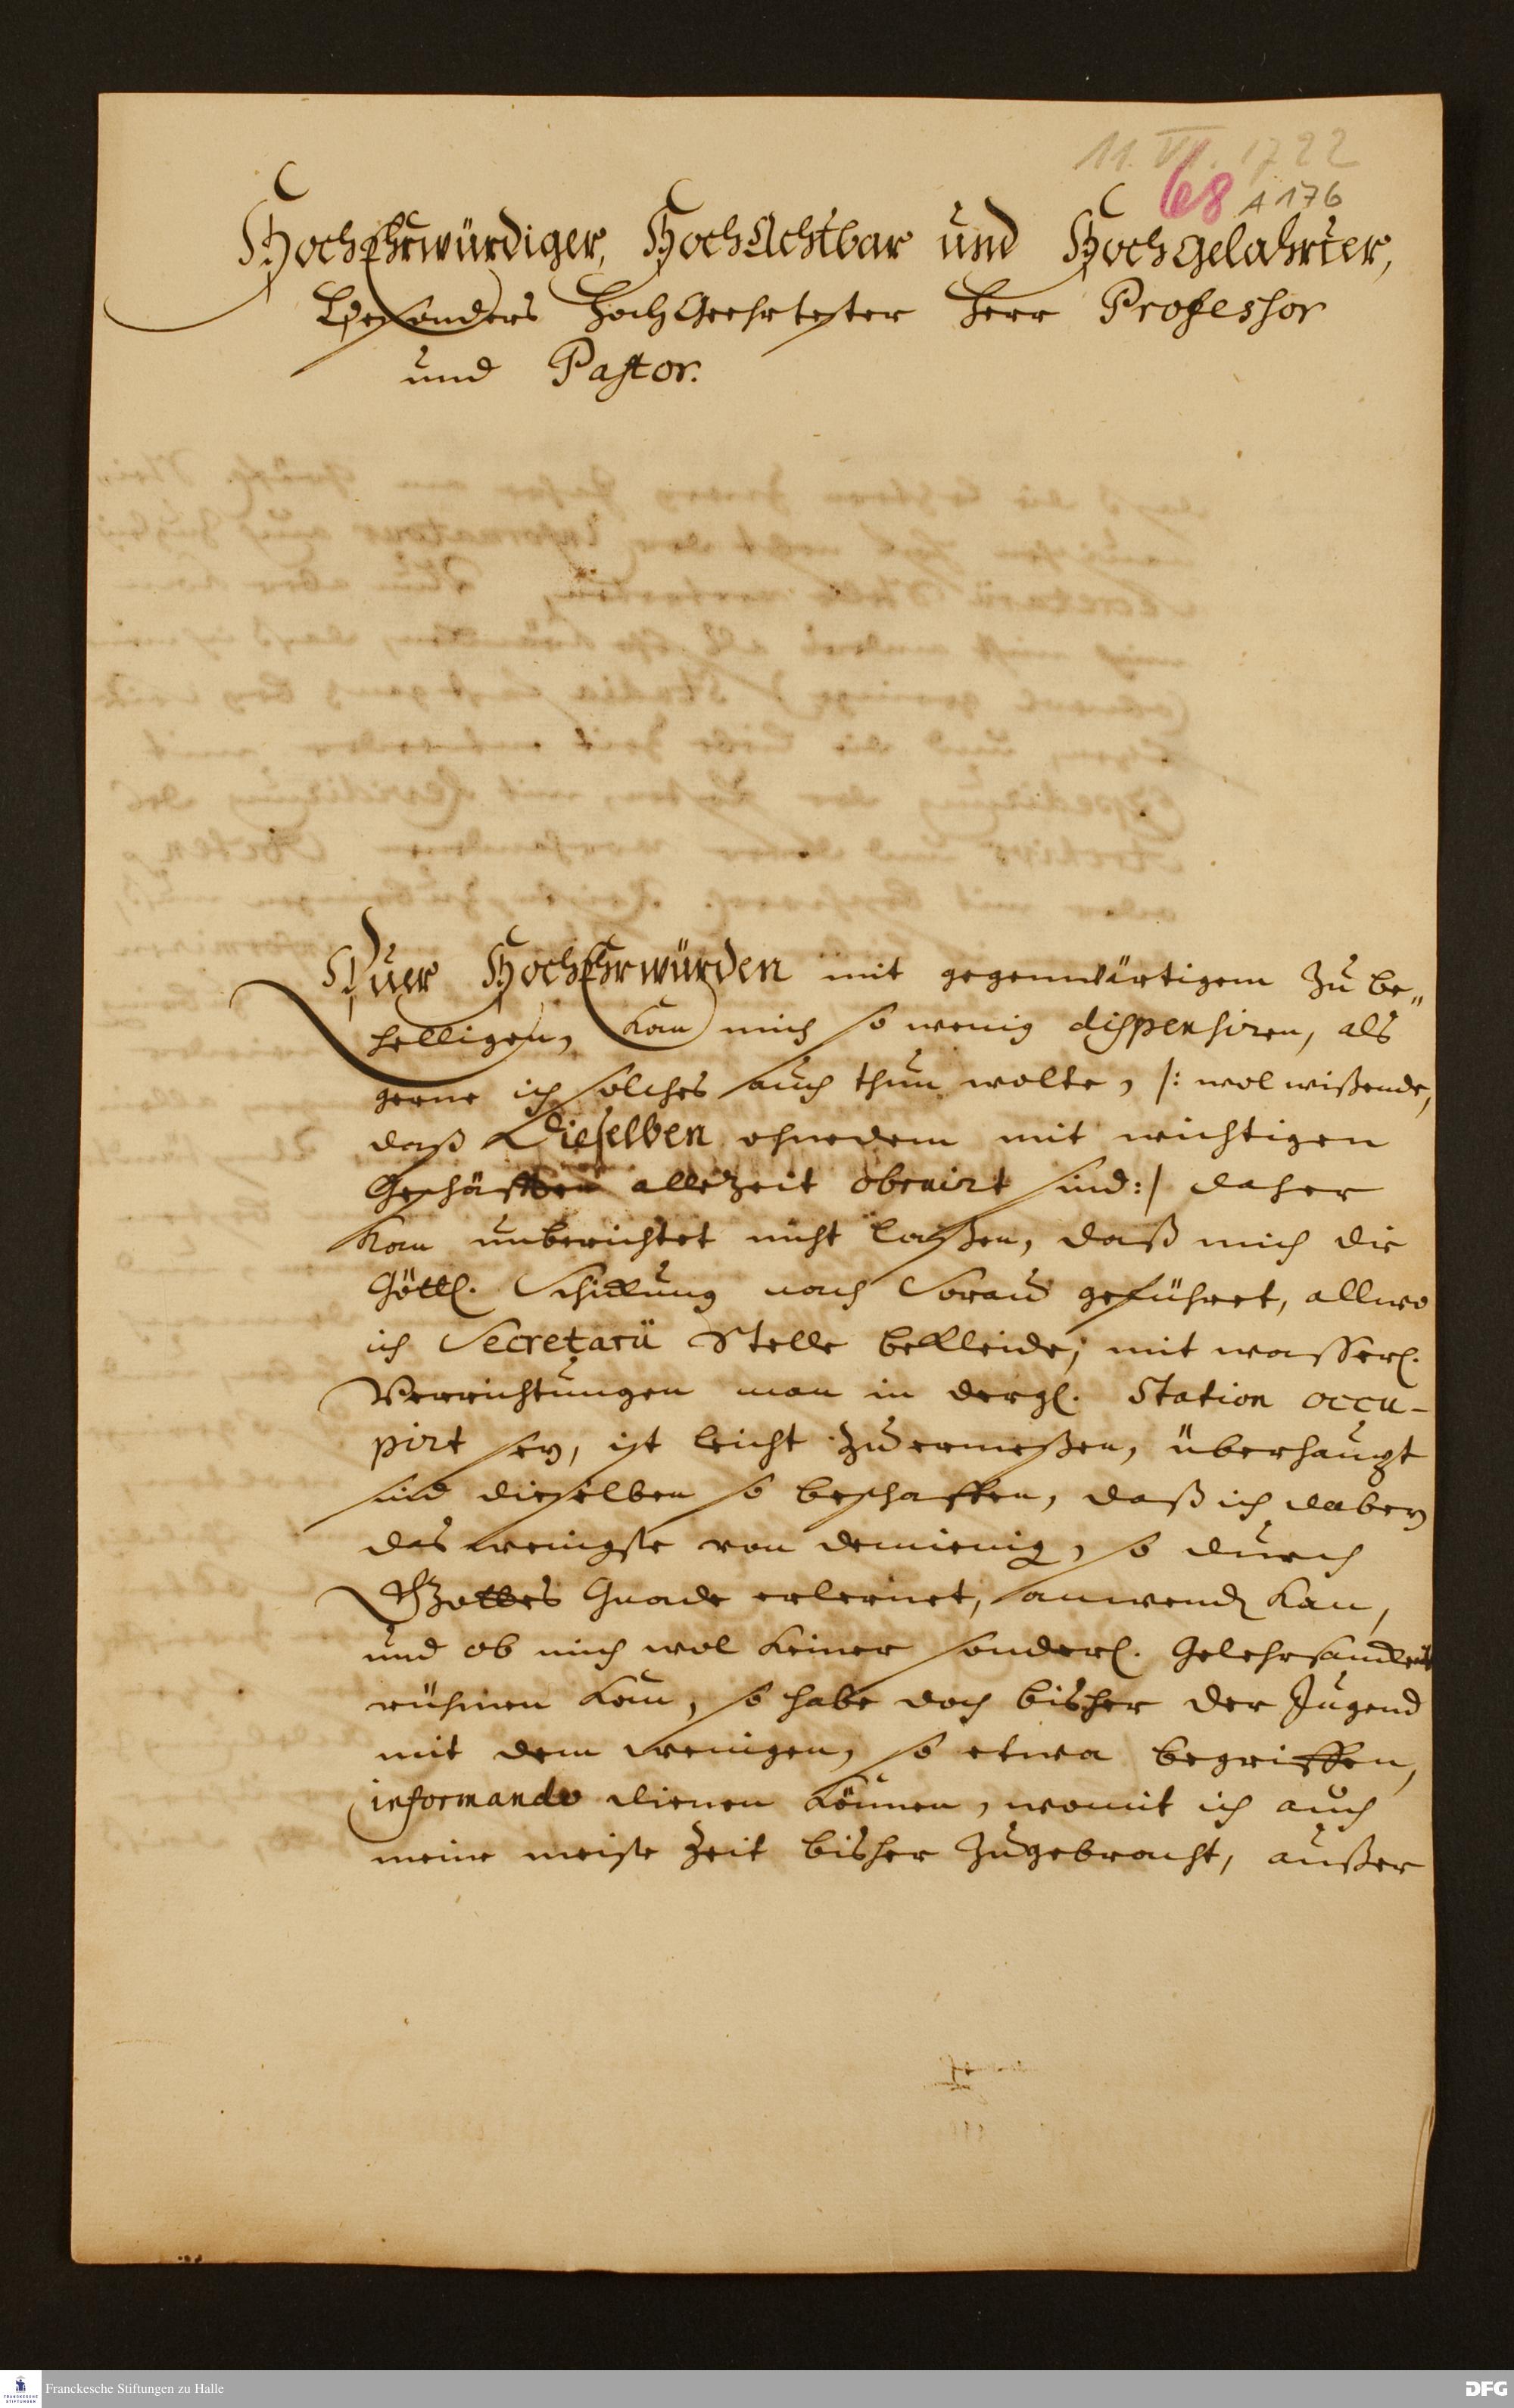 11. VI. 1722
68 A 176
HochEhrwürdiger, HochAchtbar und Hochgelahrter,
Besonders HochGeehrtester Herr Professor
und Pastor.
Euer HochEhrwürden mit gegenwärtigem zu be„
helligen, kan mich so wenig dispensiren, als
gerne ich solches auch thun wolte, /: wol wißende,
daß Dieselben ohnedem mit wichtigen
Geschäfften allezeit obruirt sind :/ daher
kan unberichtet nicht laßen, daß mich die
Göttl. Schickung nach Sorau geführet, allwo
ich Secretarii Stelle bekleide; mit wasserl.
Verrichtungen man in dergl. Station occu-
pirt sey, ist leicht zu ermeßen, überhaupt
sind dieselben so beschaffen, daß ich dabey
das wenigste von demienig, so durch
Gottes Gnade erlernet, anwend kan,
und ob mich wol keiner sonderl. Gelehrsamkeit
rühmen kan, so habe doch bisher der Jugend
mit dem wenigen, so etwa begriffen,
informando dienen können, womit ich auch
meine meiste Zeit bisher zugebracht, außer
Franckesche Stiftungen zu Halle
DFG